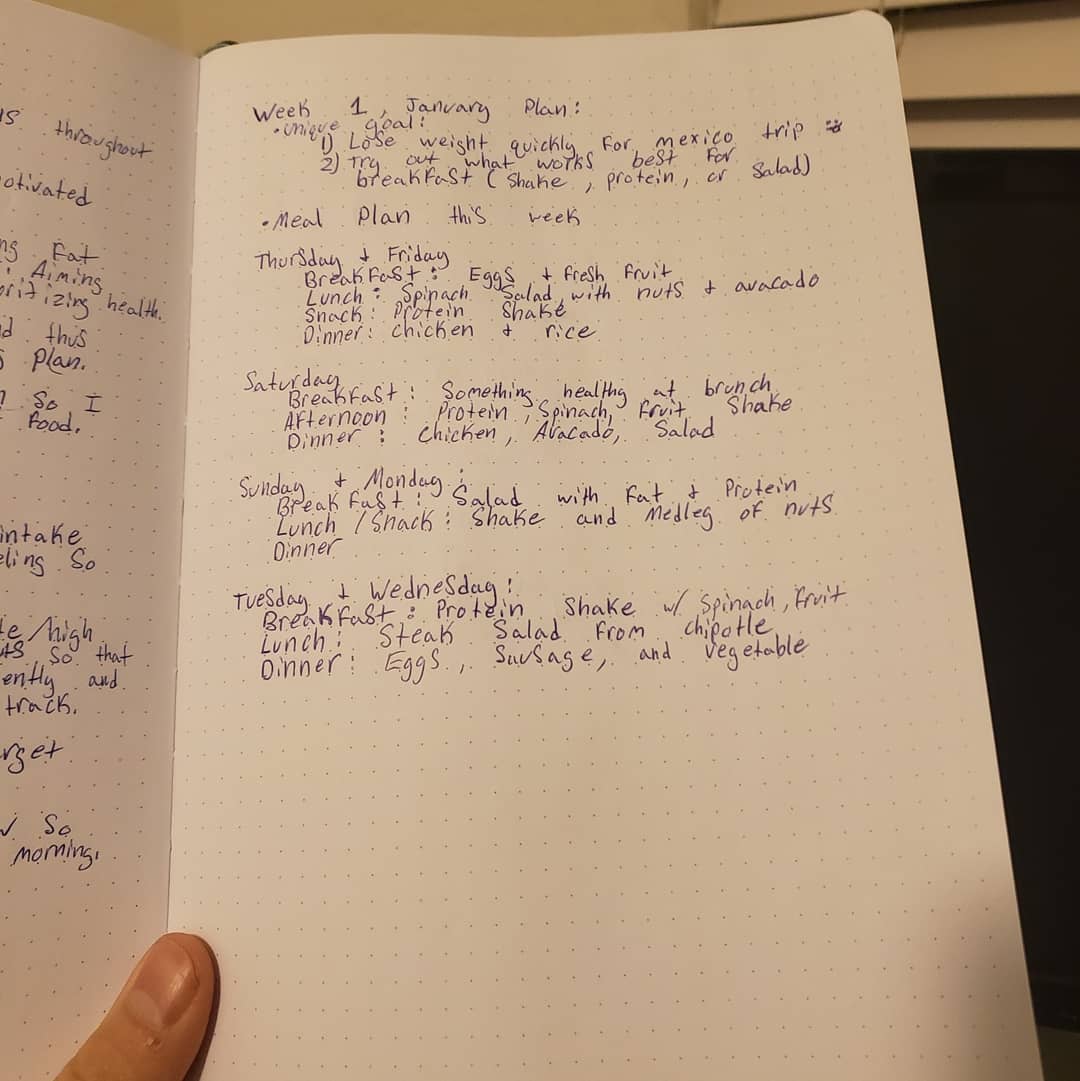 us throughout
otivated
ng Fat
: Aiming
oritizing health.
d thus
s Plan.
? So I
food.
intake
eling So
te/high
uts so that
ently and
track.
rget
v. So
morning.
Week 1, January Plan:
• Unique goal:
1) Lose weight quickly for mexico trip
2) Try out what works best for
breakfast (Shake, protein, or Salad)
• Meal Plan this week
Thursday + Friday
Breakfast: Eggs + fresh fruit
Lunch: Spinach Salad, with nuts + avacado
Snack: Protein Shake
Dinner: chicken + rice
Saturday
Breakfast: Something healthy at brunch
Afternoon: Protein, Spinach, Fruit Shake
Dinner: Chicken, Avacado, Salad
Sunday + Monday:
Breakfast: Salad with Fat + Protein
Lunch/Snack: Shake and Medley of nuts
Dinner
Tuesday + Wednesday:
Breakfast: Protein Shake w/ Spinach, Fruit
Lunch: Steak Salad From chipotle
Dinner: Eggs, Sausage, and vegetable